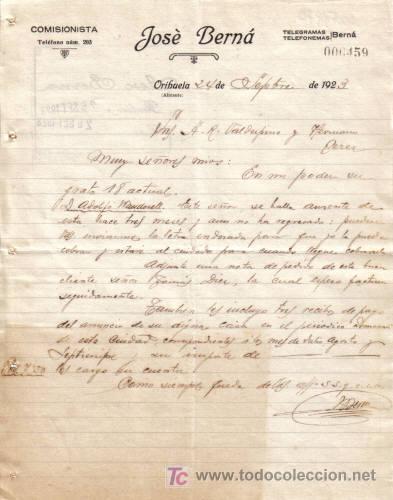 COMISIONISTA
Teléfono núm. 203
José Berná
TELEGRAMAS
TELEFONEMAS
Berná
000459
Orihuela 24 de Septbre de 1923
(Alicante)
Sres. A. R. Valdespino y Hermano
Jerez
Muy señores mios:
En mi poder su
grata 18 actual.
D. Adolfo Este señor se halla ausente de
esta hace tres meses y aun no ha regresado: pueden
Vds enviarme la letra endosada para que yo la pueda
cobrar y estaré al cuidado para cuando llegue cobrarla
Adjunto una nota de pedido de este buen
cliente señor Tomás Diez, la cual espero facturen
seguidamente.
Tambien les incluyo tres recibos de pago
del anuncio de su digna casa en el periodico
de esta Ciudad, correspondientes a los mes de Julio Agosto y
Septiembre, su importe de
les cargo en cuenta
Como siempre queda de Vds affmo s.s. q.e.s.m.
J. Berná
TC todocoleccion
www.todocoleccion.net